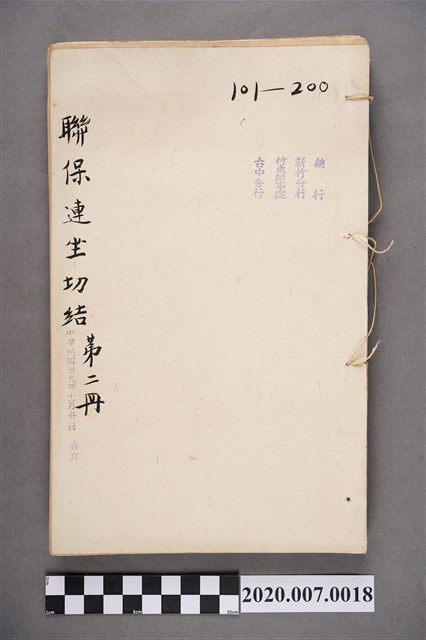 101—200
總行
新竹分行
竹東辦事處
台中分行
聯保連坐切結
第二冊
中華民國卅九年十月廿日
0cm
5cm
10cm
2020.007.0018